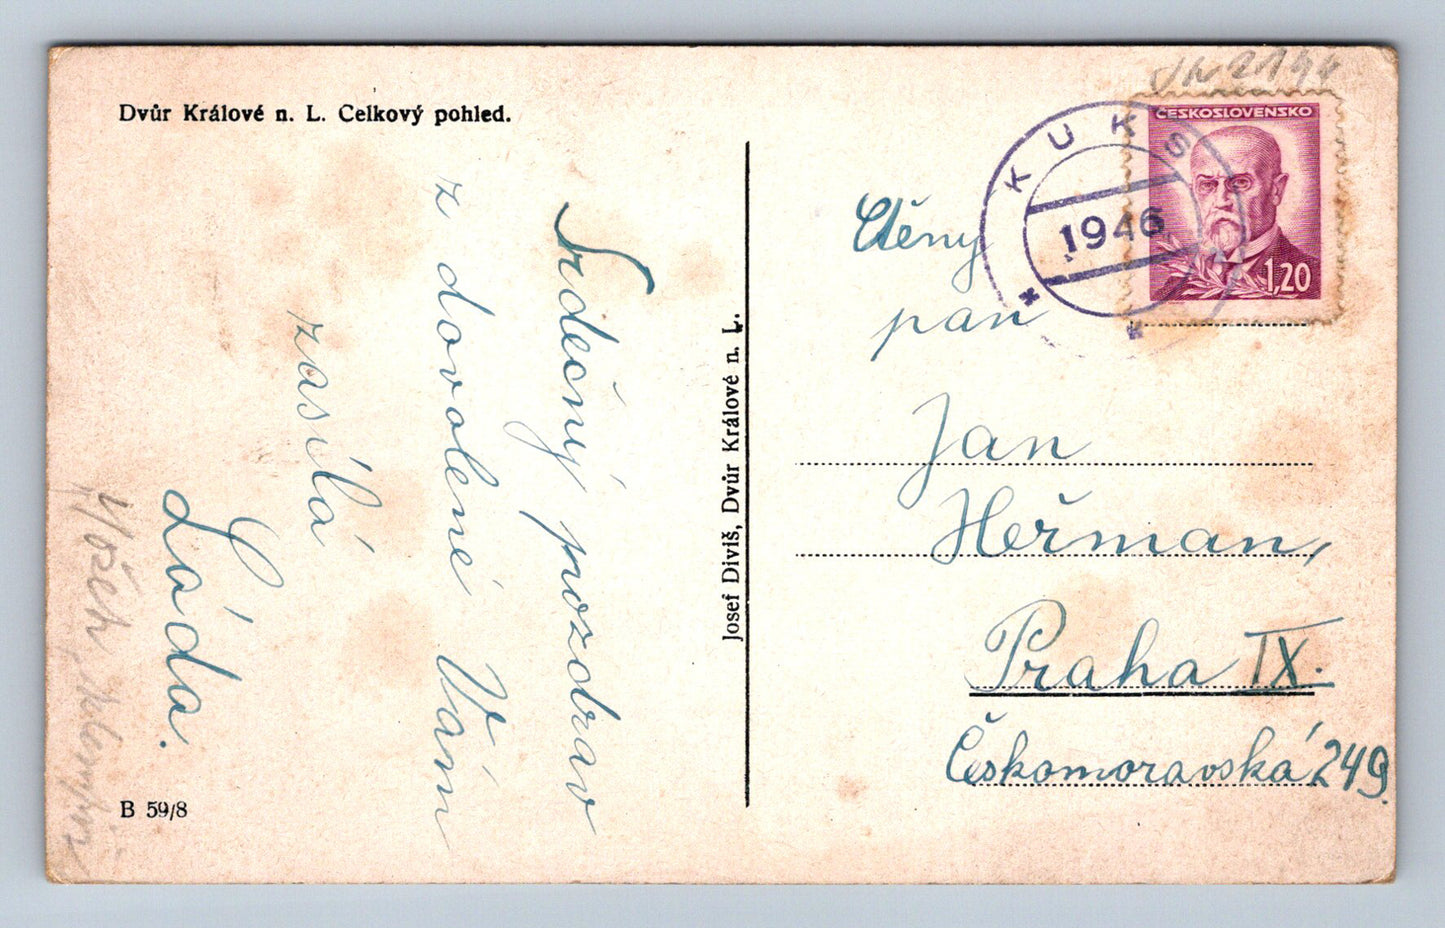 Dvůr Králové n. L. Celkový pohled.
Srdečný pozdrav
z dovolené Vám
zasílá
Láda.
B 59/8
Josef Diviš, Dvůr Králové n. L.
KUKS
1946
ČESKOSLOVENSKO
1,20
Ctěný
pan
Jan
Heřman,
Praha IX.
Českomoravská 249.